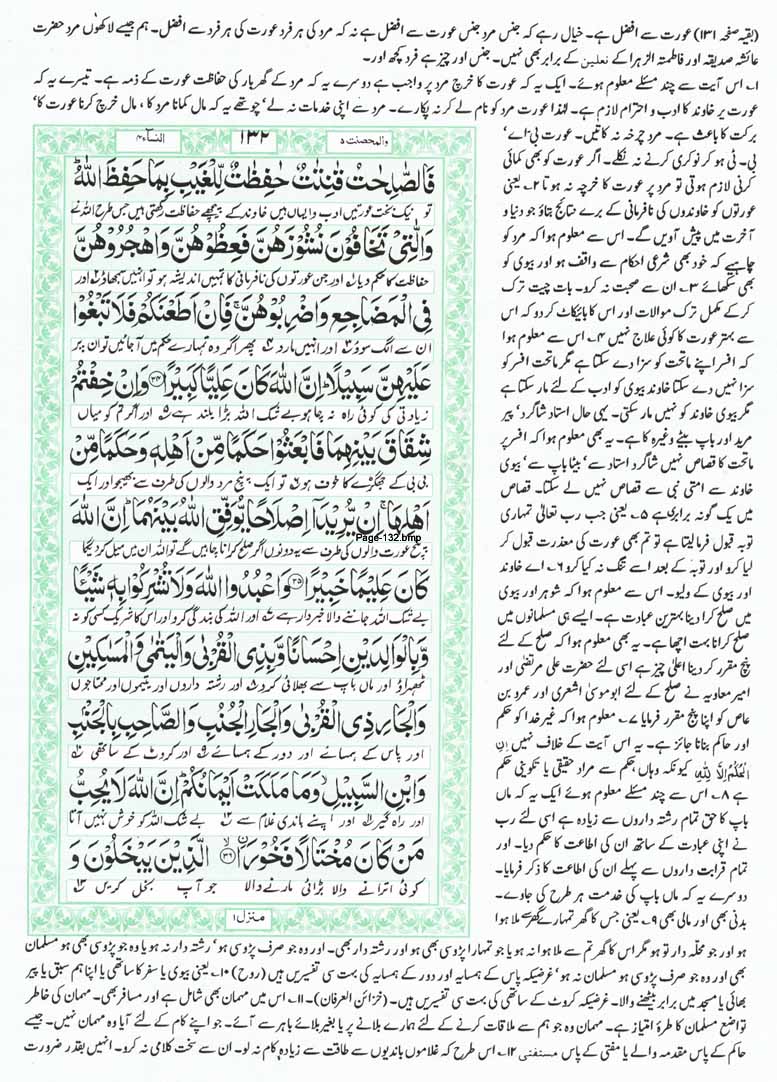 (بقیہ صفحہ ۱۳۱) عورت سے افضل ہے۔ خیال رہے کہ جنس مرد جنس عورت سے افضل ہے نہ کہ مرد کی ہر فرد عورت کی ہر فرد سے افضل۔ ہم جیسے لاکھوں مرد حضرت
عائشہ صدیقہ اور فاطمتہ الزہرا کے نعلین کے برابر بھی نہیں۔ جنس اور چیز ہے فرد کچھ اور۔
۱۔ اس آیت سے چند مسئلے معلوم ہوئے۔ ایک یہ کہ عورت کا خرچ مرد پر واجب ہے دوسرے یہ کہ مرد کے گھر بار کی حفاظت عورت کے ذمہ ہے۔ تیسرے یہ کہ
عورت پر خاوند کا ادب و احترام لازم ہے۔ لہٰذا عورت مرد کو نام لے کر نہ پکارے۔ مرد سے اپنی خدمات نہ لے' چوتھے یہ کہ مال کمانا مرد کا، مال خرچ کرنا عورت کا'
برکت کا باعث ہے۔ مرد چرخہ نہ کاتیں۔ عورت بی اے'
بی۔ ٹی ہو کر نوکری کرنے نہ نکلے۔ اگر عورت کو بھی کمائی
کرنی لازم ہوتی تو مرد پر عورت کا خرچہ نہ ہوتا ۲۔ یعنی
عورتوں کو خاوندوں کی نافرمانی کے برے نتائج بتاؤ جو دنیا و
آخرت میں پیش آویں گے۔ اس سے معلوم ہوا کہ مرد کو
چاہیے کہ خود بھی شرعی احکام سے واقف ہو اور بیوی کو
بھی سکھائے ۳۔ ان سے صحبت نہ کرو۔ بات چیت ترک
کر کے مکمل ترک موالات اور اس کا بائیکاٹ کر دو کہ اس
سے بہتر عورت کا کوئی علاج نہیں ۴۔ اس سے معلوم ہوا
کہ افسر اپنے ماتحت کو سزا دے سکتا ہے مگر ماتحت افسر کو
سزا نہیں دے سکتا خاوند بیوی کو ادب کے لئے مار سکتا ہے
مگر بیوی خاوند کو نہیں مار سکتی۔ یہی حال استاد شاگرد' پیر
مرید اور باپ بیٹے وغیرہ کا ہے۔ یہ بھی معلوم ہوا کہ افسر پر
ماتحت کا قصاص نہیں شاگرد استاد سے' بیٹا باپ سے' بیوی
خاوند سے امتی نبی سے قصاص نہیں لے سکتا۔ قصاص
میں یک گونہ برابری ہے ۵۔ یعنی جب رب تعالیٰ تمہاری
توبہ قبول فرما لیتا ہے تو تم بھی عورت کی معذرت قبول کر
لیا کرو اور توبہ کے بعد اسے تنگ نہ کیا کرو ۶۔ اے خاوند
اور بیوی کے ولیو۔ اس سے معلوم ہوا کہ شوہر اور بیوی
میں صلح کرا دینا بہترین عبادت ہے۔ ایسے ہی مسلمانوں میں
صلح کرانا بہت اچھا ہے۔ یہ بھی معلوم ہوا کہ صلح کے لئے
پنچ مقرر کر دینا اعلیٰ چیز ہے اسی لئے حضرت علی مرتضٰی اور
امیر معاویہ نے صلح کے لئے ابو موسیٰ اشعری اور عمرو بن
عاص کو اپنا پنچ مقرر فرمایا ۷۔ معلوم ہوا کہ غیر خدا کو حکم
اور حاکم بنانا جائز ہے۔ یہ اس آیت کے خلاف نہیں اِنِ
الْحُكْمُ اِلَّا لِلّٰهِ کیونکہ وہاں حکم سے مراد حقیقی یا تکوینی حکم
ہے ۸۔ اس سے چند مسئلے معلوم ہوئے ایک یہ کہ ماں
باپ کا حق تمام رشتہ داروں سے زیادہ ہے اسی لئے رب
نے اپنی عبادت کے ساتھ ان کی اطاعت کا حکم دیا۔ اور
تمام قرابت داروں سے پہلے ان کی اطاعت کا ذکر فرمایا۔
دوسرے یہ کہ ماں باپ کی خدمت ہر طرح کی جاوے۔
بدنی بھی اور مالی بھی ۹۔ یعنی جس کا گھر تمہارے گھر سے ملا ہوا
والمحصنت ۵ ۱۳۲ النساء ۴
فَالصّٰلِحٰتُ قٰنِتٰتٌ حٰفِظٰتٌ لِّلْغَيْبِ بِمَا حَفِظَ اللّٰهُ
تو نیک بخت عورتیں ادب والیاں ہیں خاوند کے پیچھے حفاظت رکھتی ہیں جس طرح اللہ نے
وَالّٰتِيْ تَخَافُوْنَ نُشُوْزَهُنَّ فَعِظُوْهُنَّ وَاهْجُرُوْهُنَّ
حفاظت کا حکم دیا اور جن عورتوں کی نافرمانی کا تمہیں اندیشہ ہو تو انہیں سمجھاؤ اور
فِي الْمَضَاجِعِ وَاضْرِبُوْهُنَّ فَاِنْ اَطَعْنَكُمْ فَلَا تَبْغُوْا
ان سے الگ سوؤ اور انہیں مارو پھر اگر وہ تمہارے حکم میں آ جائیں تو ان پر
عَلَيْهِنَّ سَبِيْلًا اِنَّ اللّٰهَ كَانَ عَلِيًّا كَبِيْرًا ۳۴ وَاِنْ خِفْتُمْ
زیادتی کی کوئی راہ نہ چاہو بے شک اللہ بڑا بلند ہے اور اگر تم کو میاں
شِقَاقَ بَيْنِهِمَا فَابْعَثُوْا حَكَمًا مِّنْ اَهْلِهٖ وَحَكَمًا مِّنْ
بی بی کے جھگڑے کا خوف ہو تو ایک پنچ مرد والوں کی طرف سے بھیجو اور ایک
اَهْلِهَا اِنْ يُّرِيْدَآ اِصْلَاحًا يُّوَفِّقِ اللّٰهُ بَيْنَهُمَا اِنَّ اللّٰهَ
Page-132.bmp
پنچ عورت والوں کی طرف سے یہ دونوں اگر صلح کرانا چاہیں گے تو اللہ ان میں میل کر دیگا
كَانَ عَلِيْمًا خَبِيْرًا ۳۵ وَاعْبُدُوا اللّٰهَ وَلَا تُشْرِكُوْا بِهٖ شَيْـًٔا
بے شک اللہ جاننے والا خبردار ہے اور اللہ کی بندگی کرو اور اس کا شریک کسی کو نہ
وَّبِالْوَالِدَيْنِ اِحْسَانًا وَّبِذِي الْقُرْبٰى وَالْيَتٰمٰى وَالْمَسٰكِيْنِ
ٹھہراؤ اور ماں باپ سے بھلائی کرو اور رشتہ داروں اور یتیموں اور محتاجوں
وَالْجَارِ ذِي الْقُرْبٰى وَالْجَارِ الْجُنُبِ وَالصَّاحِبِ بِالْجَنْۢبِ
اور پاس کے ہمسائے اور دور کے ہمسائے اور کروٹ کے ساتھی
وَابْنِ السَّبِيْلِ وَمَا مَلَكَتْ اَيْمَانُكُمْ اِنَّ اللّٰهَ لَا يُحِبُّ
اور راہ گیر اور اپنے باندی غلام سے بے شک اللہ کو خوش نہیں آتا
مَنْ كَانَ مُخْتَالًا فَخُوْرَا ۳۶ الَّذِيْنَ يَبْخَلُوْنَ وَ
کوئی اترانے والا بڑائی مارنے والا جو آپ بخل کریں
منزل ۱
ہو اور جو محلہ دار تو ہو مگر اس کا گھر تم سے ملا ہوا نہ ہو یا جو تمہارا پڑوسی بھی ہو اور رشتہ دار بھی۔ اور وہ جو صرف پڑوسی ہو' رشتہ دار نہ ہو یا وہ جو پڑوسی بھی ہو مسلمان
بھی اور وہ جو صرف پڑوسی ہو مسلمان نہ ہو' غرضیکہ پاس کے ہمسایہ اور دور کے ہمسایہ کی بہت سی تفسیریں ہیں (روح) ۱۰۔ یعنی بیوی یا سفر کا ساتھی یا اپنا ہم سبق یا پیر
بھائی یا مسجد میں برابر بیٹھنے والا۔ غرضیکہ کروٹ کے ساتھی کی بہت سی تفسیریں ہیں۔ (خزائن العرفان)۔ ۱۱۔ اس میں مہمان بھی شامل ہے اور مسافر بھی۔ مہمان کی خاطر
تواضع مسلمان کا طرۂ امتیاز ہے۔ مہمان وہ جو ہم سے ملاقات کرنے کے لئے ہمارے بلانے پر یا بغیر بلائے باہر سے آئے۔ جو اپنے کام کے لئے آیا وہ مہمان نہیں۔ جیسے
حاکم کے پاس مقدمہ والے یا مفتی کے پاس مستفتی ۱۲۔ اس طرح کہ غلاموں باندیوں سے طاقت سے زیادہ کام نہ لو۔ ان سے سخت کلامی نہ کرو۔ انہیں بقدر ضرورت